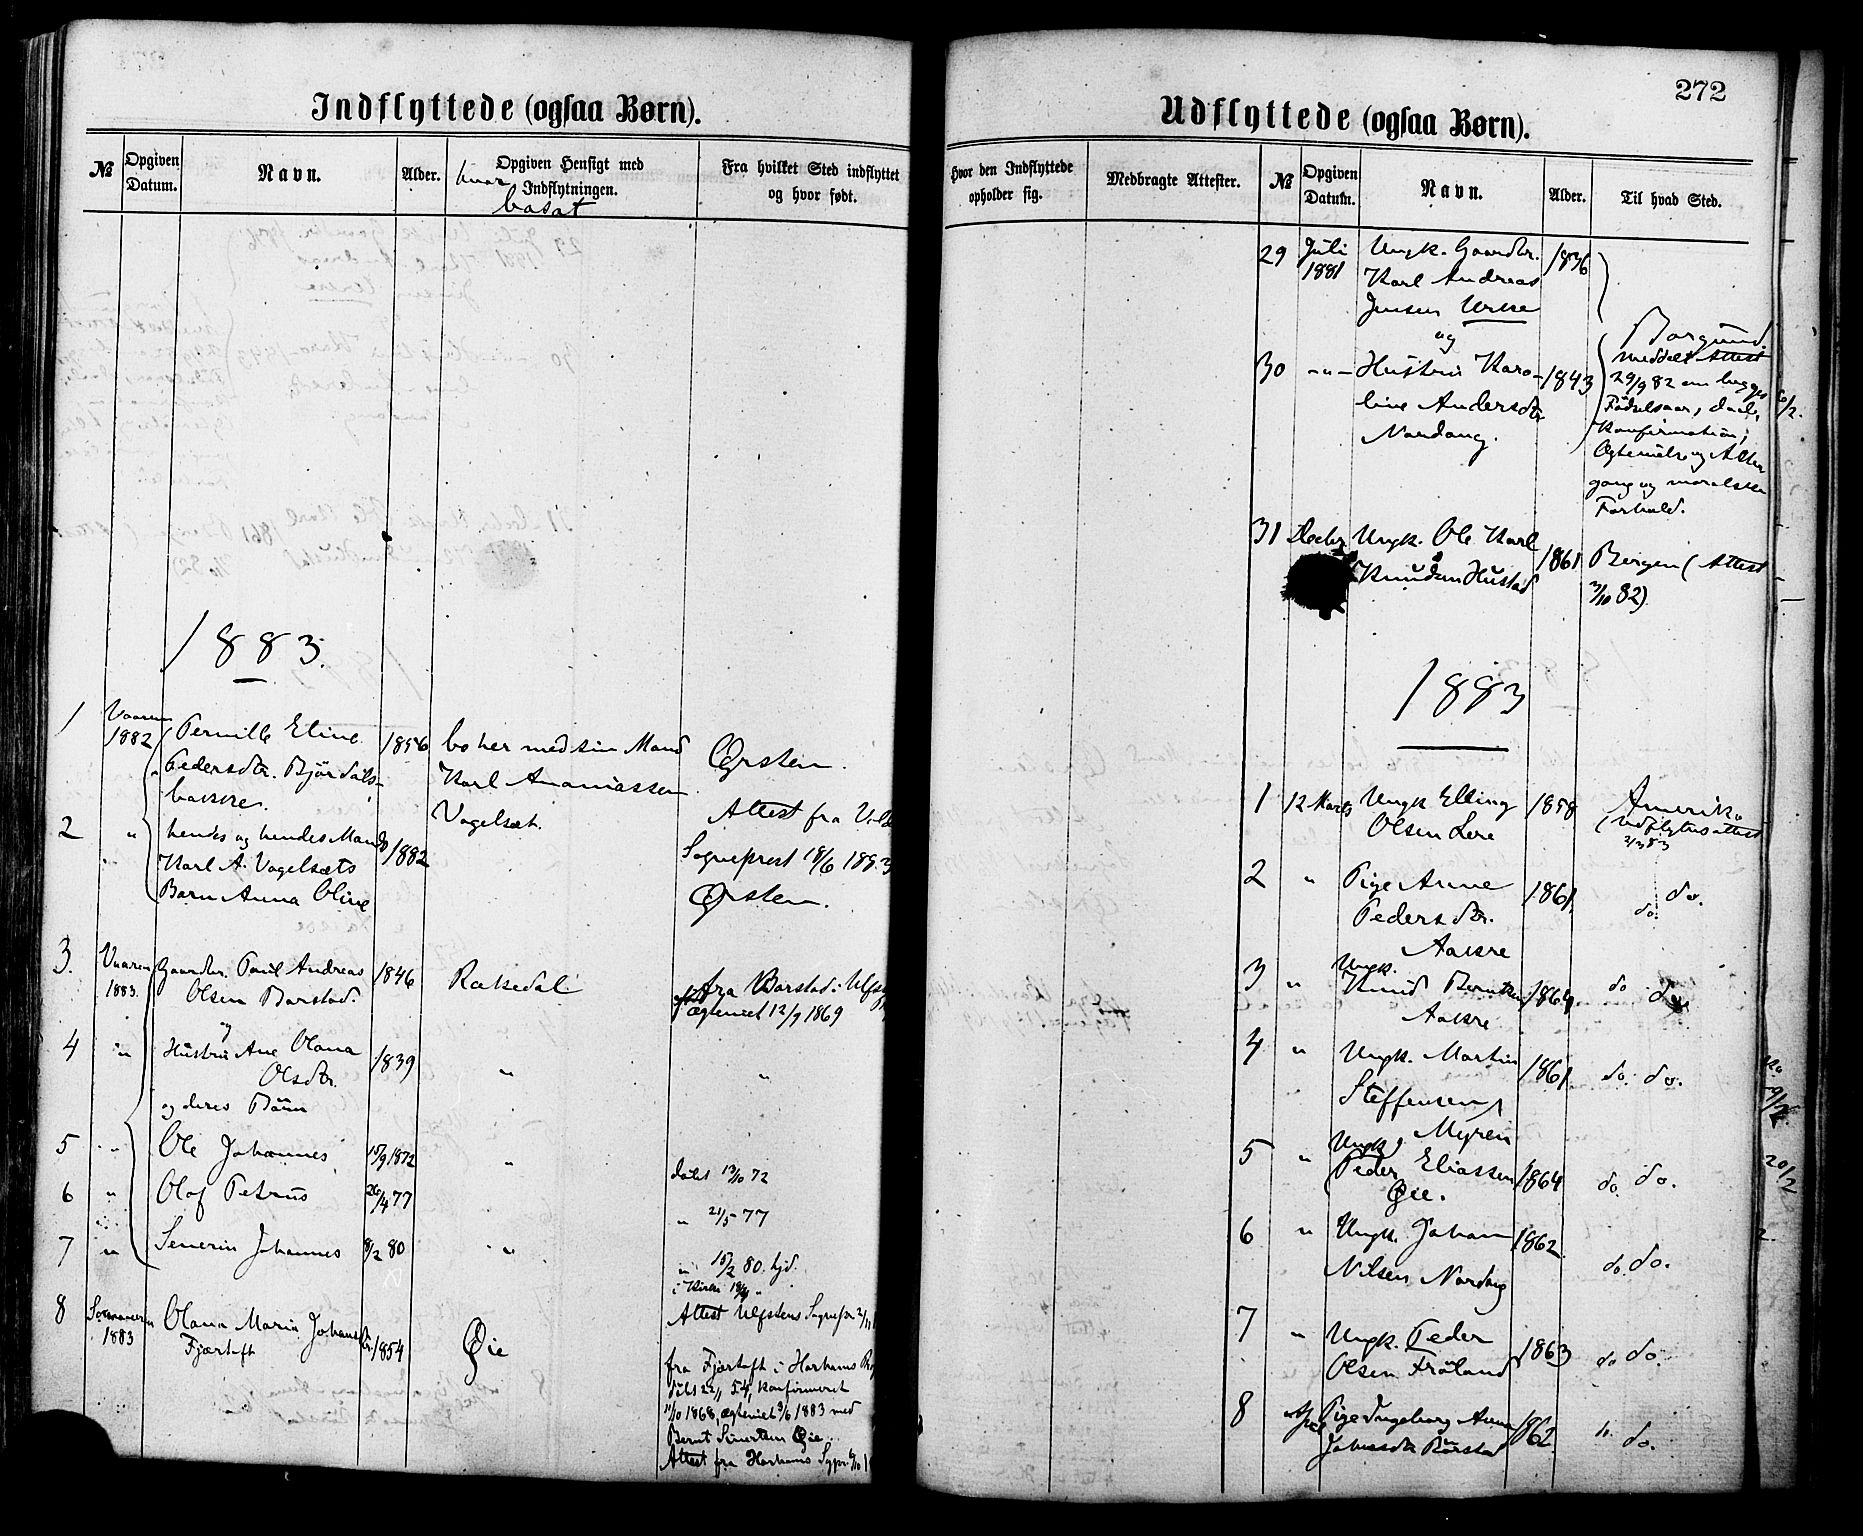 Indflyttede (ogsaa Børn).
№
Opgiven Datum.
Navn.
Alder.
Opgiven Hensigt med Indflytningen.
hvor bosat
Fra hvilket Sted indflyttet og hvor født.
1883.
1 Vaaren 1882 Pernille Eline 1856 bo her med sin Mand Ørsten.
Pedersdtr. Bjørdals- Karl Ananiassen
bakke. Vogelsæt. Attest fra
2 " hendes og hendes Mands 1882 Sogneprest 18/6 1883
Karl A. Vogelsæts
Barn Anna Oline Ørsten.
3. Vaaren 1883. Gaardbr. Paul Andreas 1846 fra Barstad i
Olsen Barstad. ægteviet 12/9 1869
og
4 " Hustru Ane Olana 1839 " "
Olsdtr.
og deres Børn
5 " Ole Johannes 15/9 1872 " døbt 13/10 72
6 " Olaf Petrus 26/4 77 " 21/5 77
7 " Severin Johannes 8/2 80 " " 15/2 80. hjd.
i Kirke
8 Sommeren 1883 Olana Maria 1854 Øie Attest Ulfstens
Fjærtoft fra Fjærtoft i Harhams
døbt 54, konfirmeret
11/10 1868, ægteviet 3/6 1883 med
Bernt Øie.
Attest fra Harhams
272
Udflyttede (ogsaa Børn).
Hvor den Indflyttede opholder sig.
Medbragte Attester.
№
Opgiven Datum.
Navn.
Alder.
Til hvad Sted.
29 Juli 1881 Ungk. Gaardbr. 1836
Karl Andreas
Jensen Urke
og Borgund.
30 " Hustru Karo- 1843 meddelt Attest
line Andersdtr 29/9 82 om begges
Nordang. Fødselsaar, daab,
Konfirmation,
Ægtevielse og Alter
gang og moralske
Forhold.
31 Decbr. Ungk. Ole Karl 1861 Bergen (Attest
Knudsen Hustad 3/10 82).
1883
1 12 Marts Ungk Elling 1858 Amerika
Olsen Lere (udflytnsattest
2/3 83
2 " Pige Anne 1861 do. do.
Pedersdtr.
Aakre
3 " Ungk. Knud 1864 do do
Aakre
4 " Ungk. Martin 1861 do. do.
Steffensen
Myren
5 " Ungk. Peder Eliassen 1864 do. do.
Øie.
6 " Ungk. Johan 1862 do. do.
Nilsen Nordang
7 " Ungk. Peder 1863 do do.
Olsen Frøland
8 April Pige Ingeborg Anna 1862 do.
Barstad